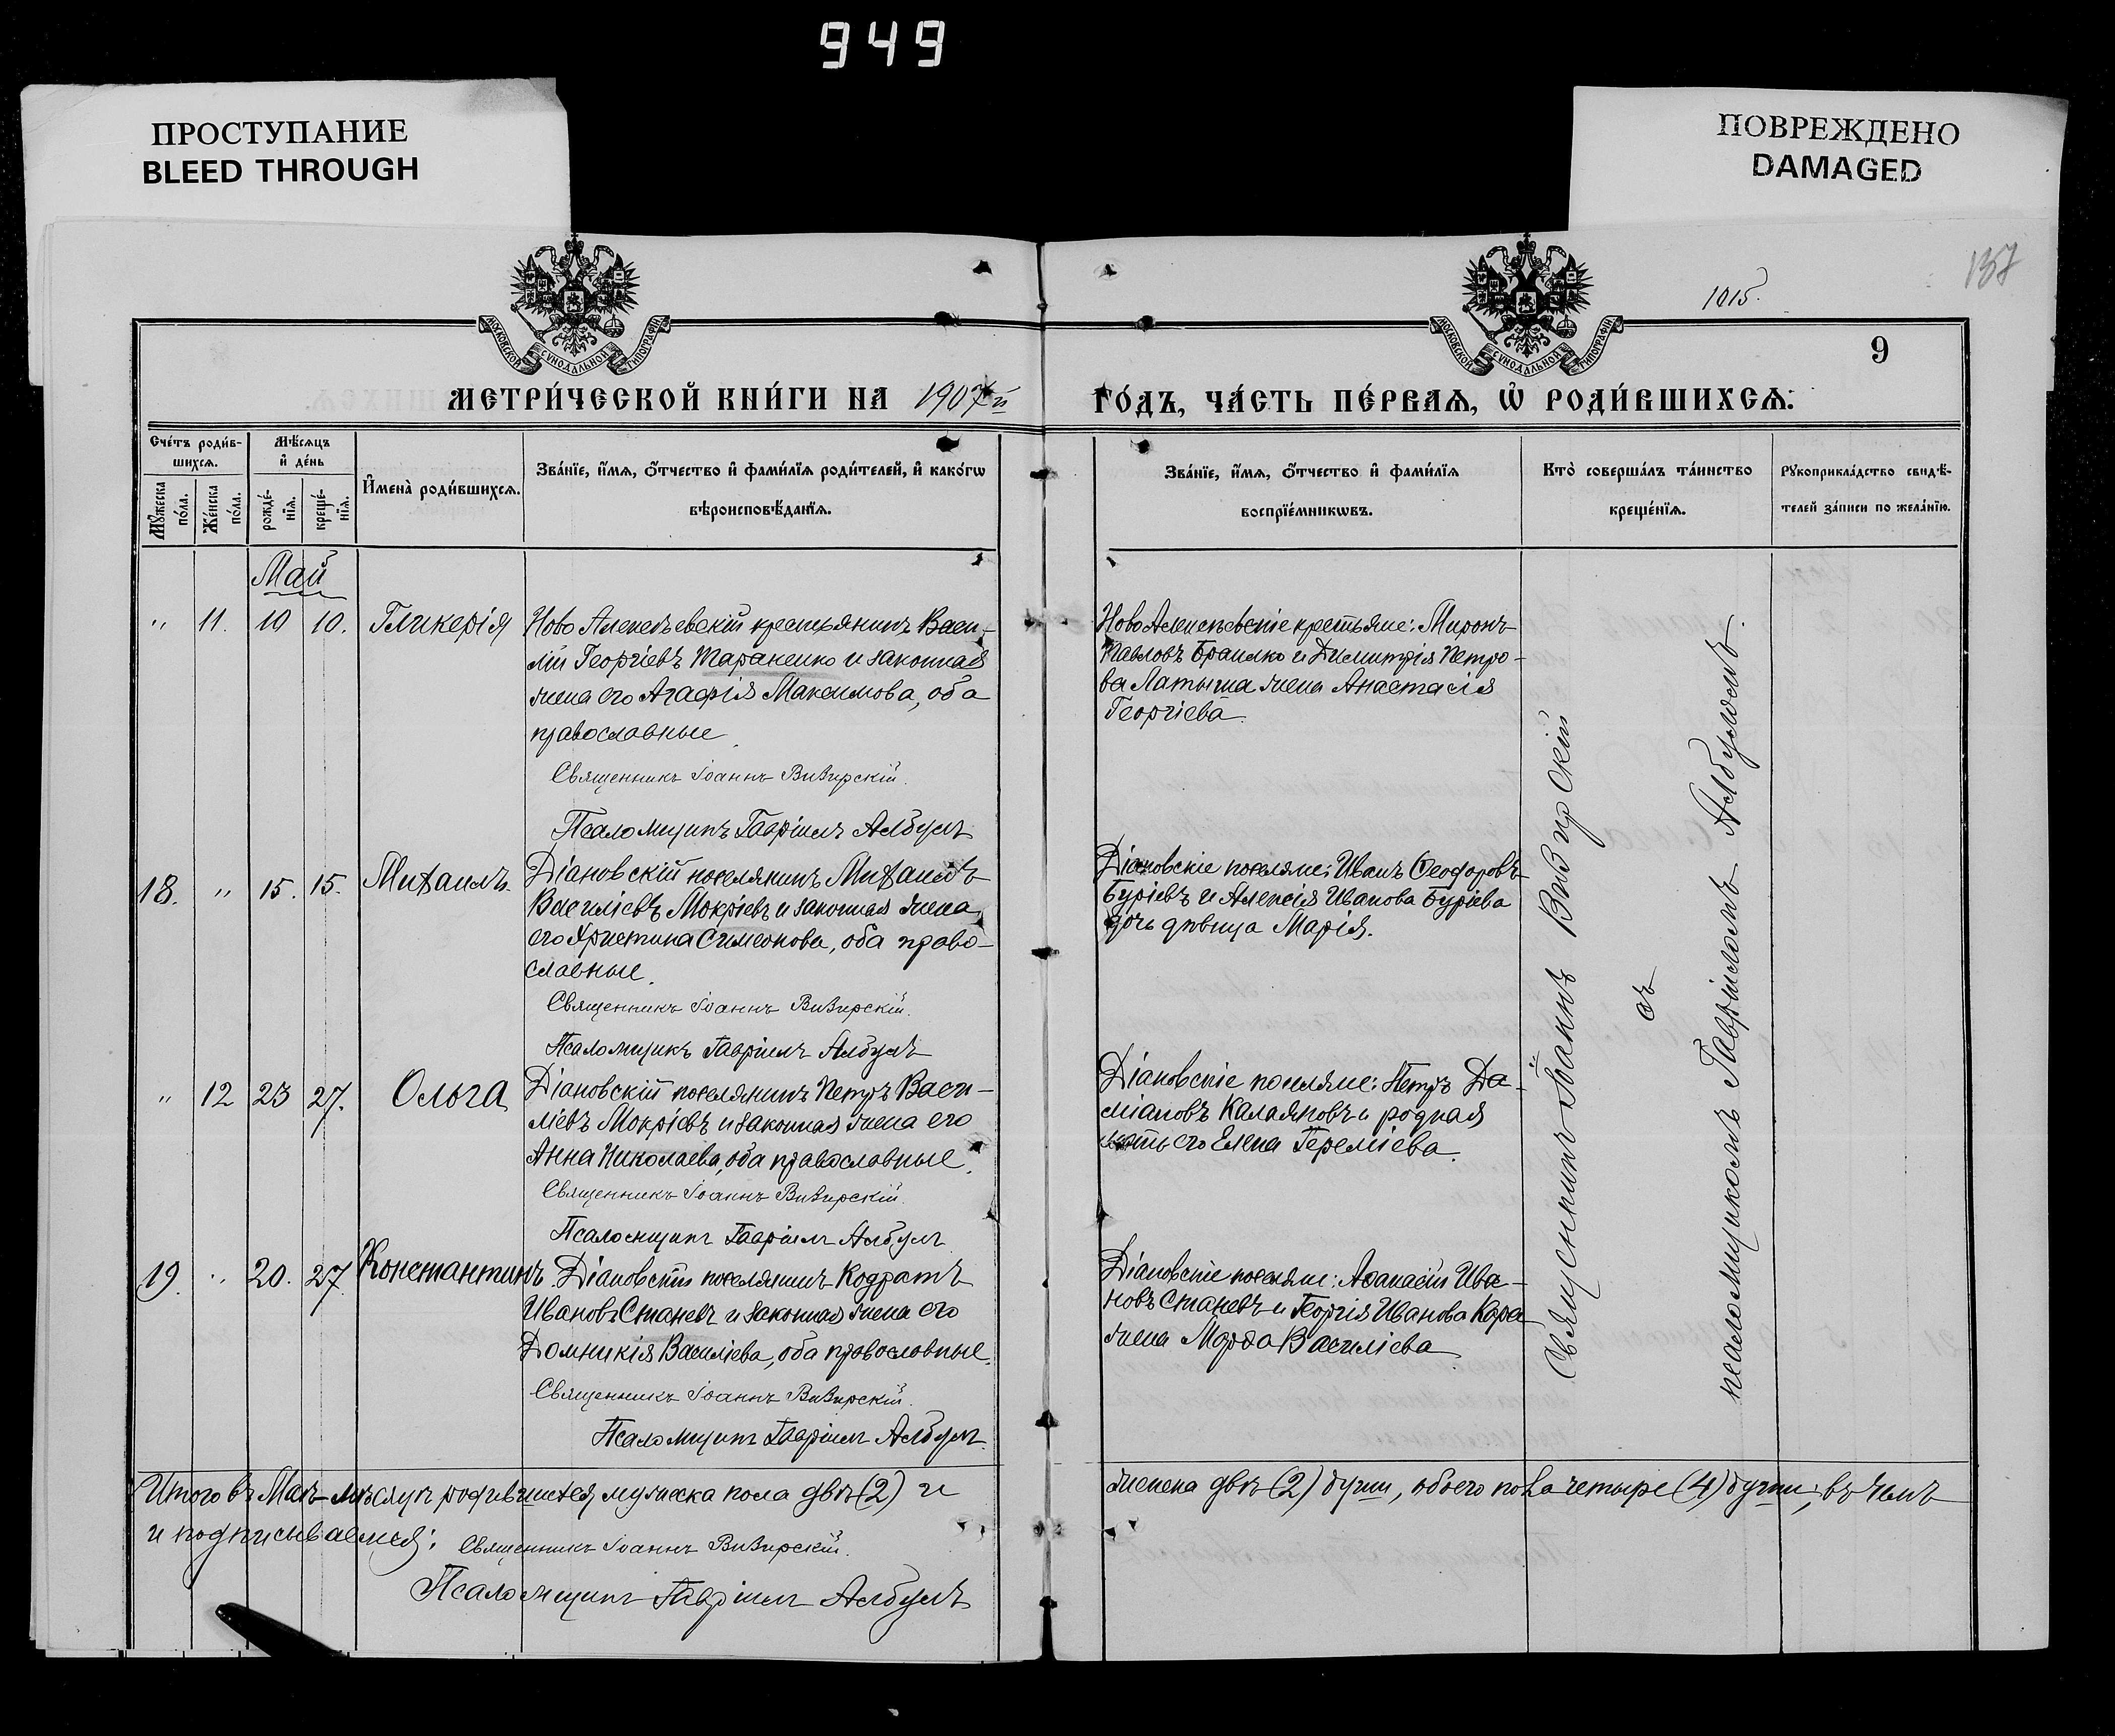 949
ПРОСТУПАНИЕ
BLEED THROUGH
ПОВРЕЖДЕНО
DAMAGED
137
1015.
МОСКОВСКОЙ СУНОДАЛЬНОЙ ТИПОГРАФІИ
МОСКОВСКОЙ СУНОДАЛЬНОЙ ТИПОГРАФІИ
9
МЕТРИ́ЧЕСКОЙ КНИ́ГИ НА 1907й
ГО́ДЪ, ЧА́СТЬ ПЕ́РВАѦ, Ѡ҆ РОДИ́ВШИХСѦ:
Сче́тъ роди́в-
шихсѧ.
Мꙋ́жеска
по́ла.
Же́нска
по́ла.
Мѣ́сѧцъ
и҆ де́нь
рожде́-
нїѧ.
креще́-
нїѧ.
И҆мена̀ роди́вшихсѧ.
Зва́нїе, и҆́мѧ, ѻ҆́тчество и҆ фами́лїѧ роди́телей, и҆ како́гѡ
вѣроисповѣ́данїѧ.
Зва́нїе, и҆́мѧ, ѻ҆́тчество и҆ фами́лїѧ
воспрїе́мникѡвъ.
Кто̀ соверша́лъ та́инство
креще́нїѧ.
Рꙋкоприкла́дство свидѣ́-
телей за́писи по жела́нїю.
Май
" 11. 10 10. Гликерія
Ново Алексѣевскій крестьянинъ Васи-
лій Георгіевъ Тараненко и законная
жена его Агафія Максимова, оба
православные.
Священникъ Іоаннъ Визирскій.
Псаломщикъ Гавріилъ Албулъ
Ново Алексѣевскіе крестьяне: Миронъ
Павловъ Браилко и Димитрія Петро-
ва Латыша жена Анастасія
Георгіева.
18. " 15. 15. Михаилъ.
Діановскій поселянинъ Михаилъ
Василіевъ Мокріевъ и законная жена
его Христина Симеонова, оба право-
славные.
Священникъ Іоаннъ Визирскій.
Псаломщикъ Гавріилъ Албулъ
Діановскіе поселяне: Иванъ Ѳеодоровъ
Буріевъ и Алексія Иванова Буріева
дочь дѣвица Марія.
" 12 23 27. Ольга
Діановскій поселянинъ Петръ Васи-
ліевъ Мокріевъ и законная жена его
Анна Николаева, оба православные.
Священникъ Іоаннъ Визирскій.
Псаломщикъ Гавріилъ Албулъ
Діановскіе поселяне: Петръ Да-
міановъ Калаяновъ и родная
мать его Елена Іереміева.
19. " 20. 27 Константинъ
Діановскій поселянинъ Кодратъ
Ивановъ Станевъ и законная жена его
Домникія Василіева, оба православные.
Священникъ Іоаннъ Визирскій.
Псаломщикъ Гавріилъ Албулъ.
Діановскіе поселяне: Аѳанасій Ива-
новъ Станевъ и Георгія Иванова Кара
жена Марѳа Василіева
Священникъ Іоаннъ Визирскій
съ
псаломщикомъ Гавріиломъ Албуломъ.
Итого въ Маѣ мѣсяцѣ родившихся мужеска пола двѣ (2) и
женска двѣ (2) души, обоего пола четыре (4) души; въ чемъ
и подписываемся:
Священникъ Іоаннъ Визирскій.
Псаломщикъ Гавріилъ Албулъ